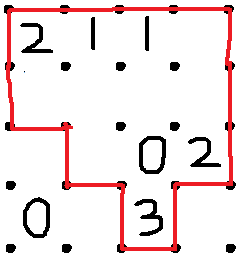 2 1 1
0 2
0 3